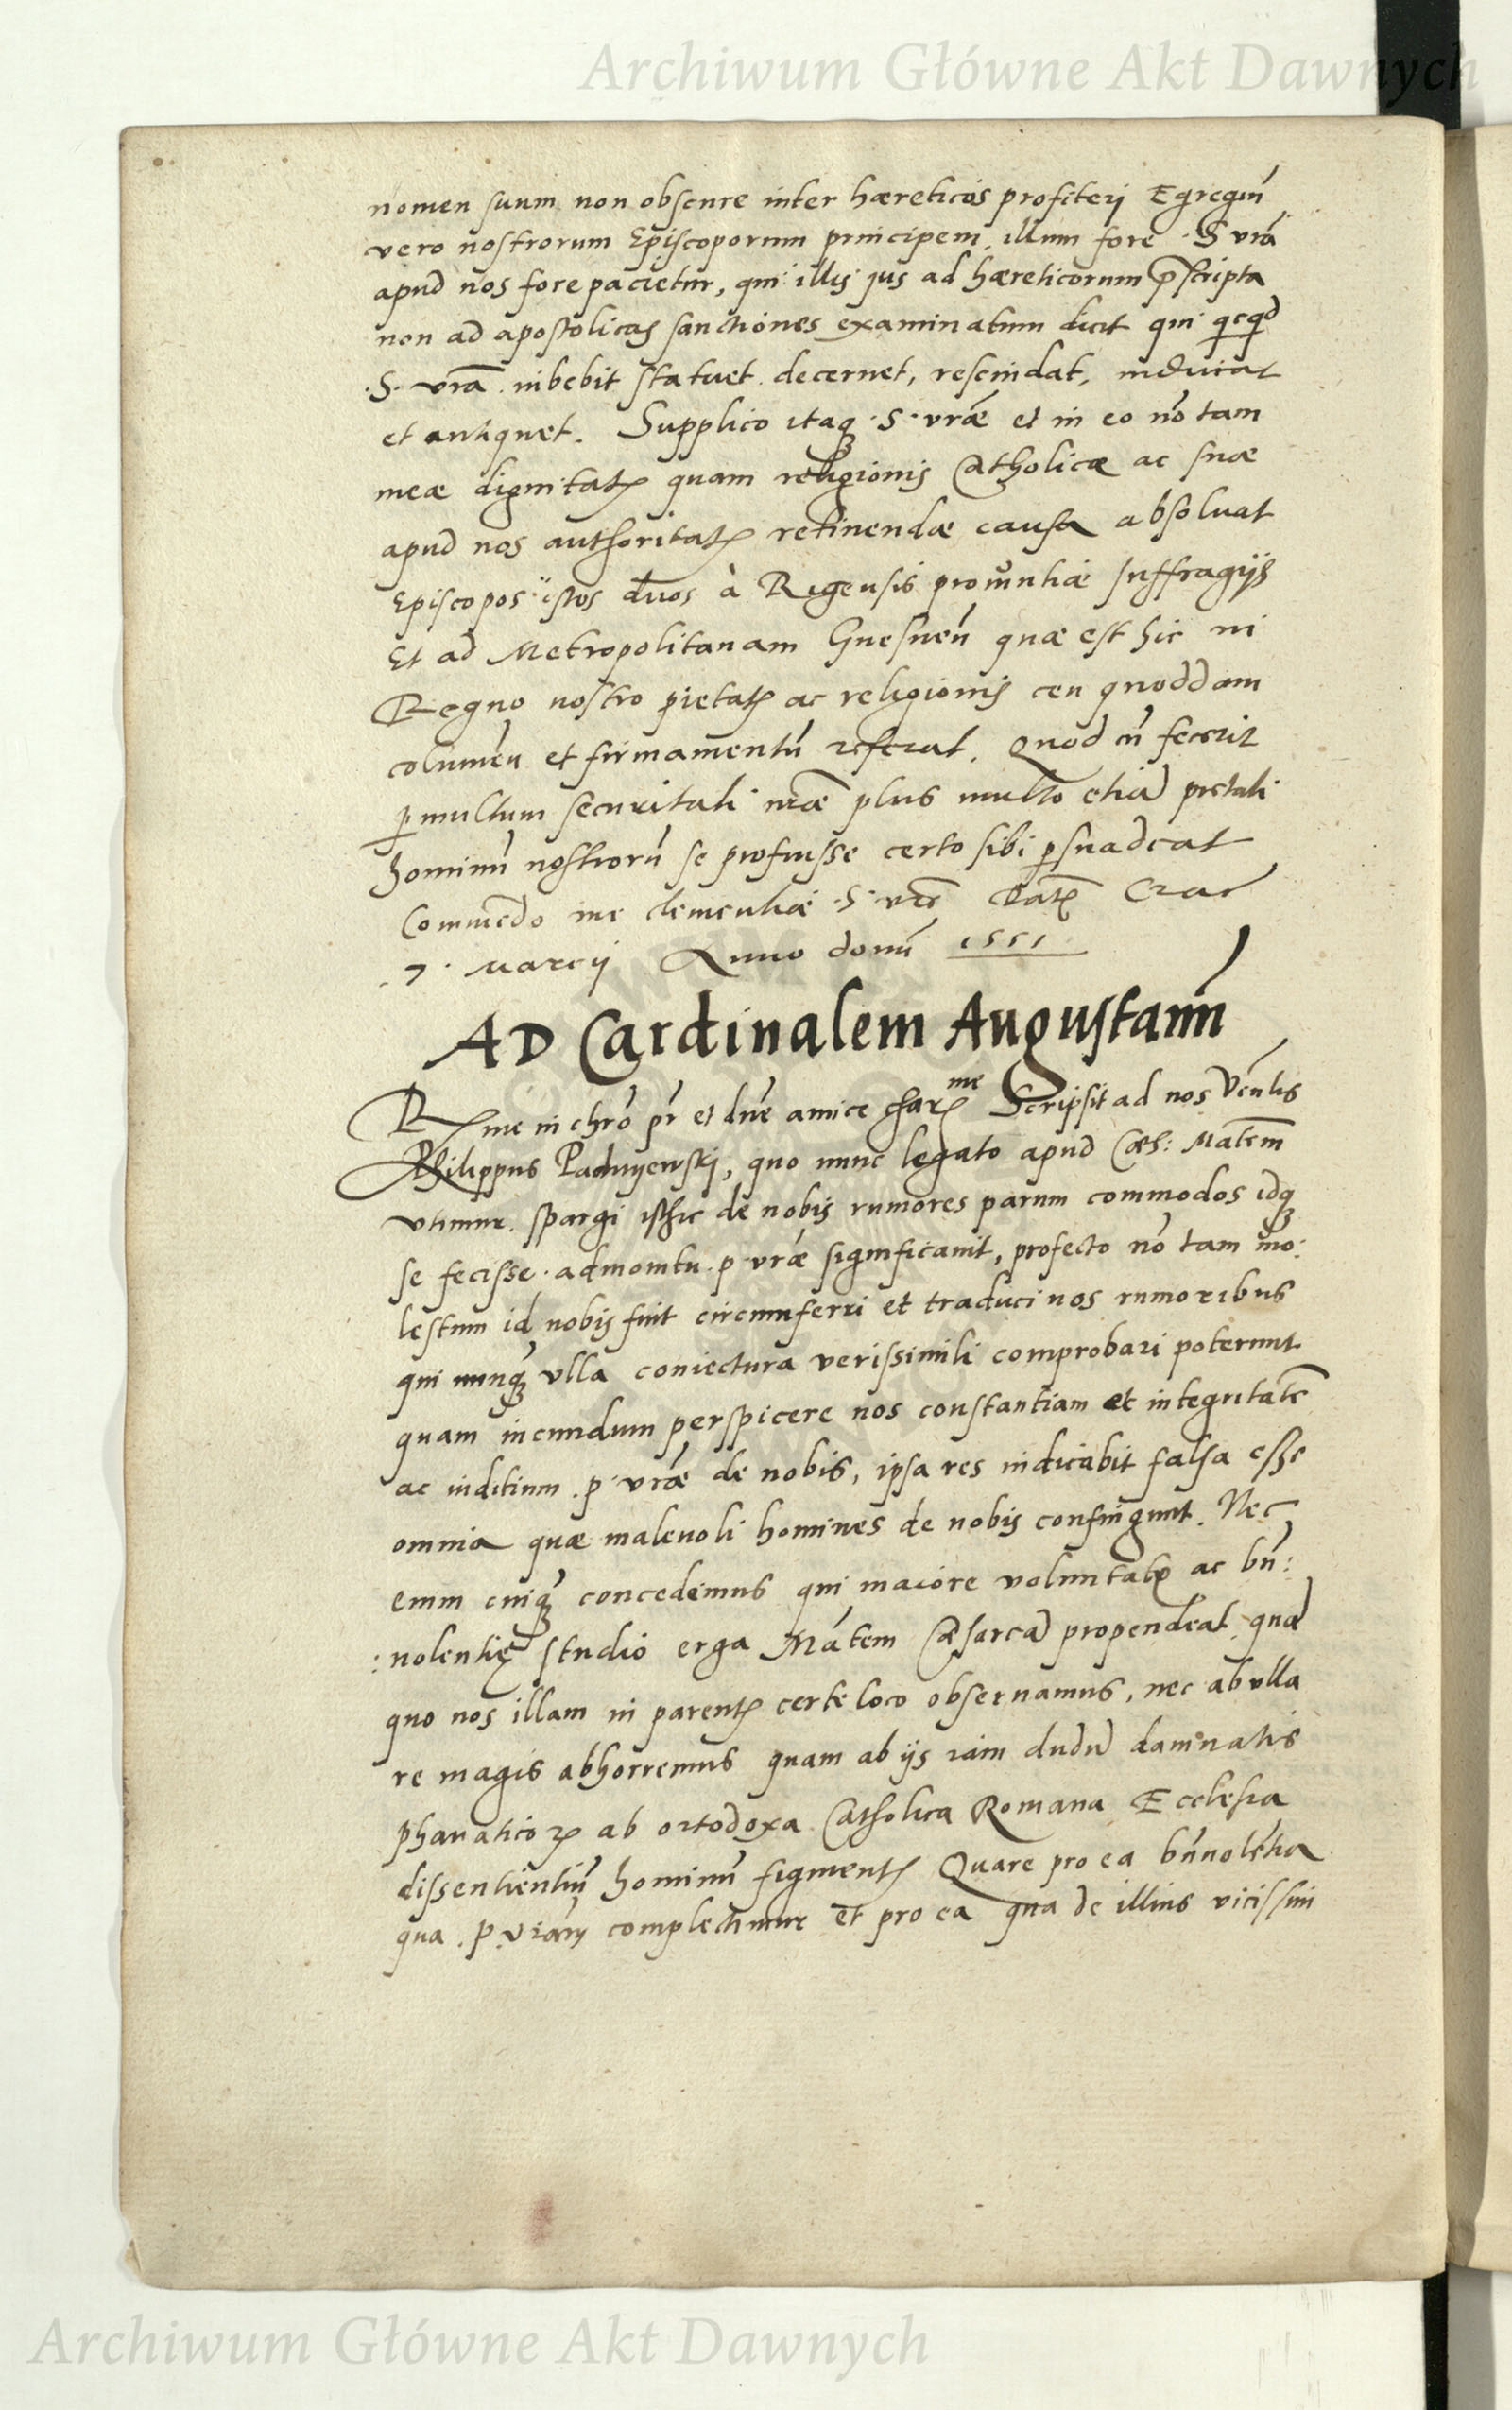 Archiwum Główne Akt Dawnych
nomen suum non obscure inter hæreticos profiterj Egregiũ
vero nostrorum Episcoporum principem illum fore S vrã
apud nos fore pacietur, qui illis jus ad hæreticorum p̃scripta
non ad apostolicas sanctiones examinatum dicit qui qcqd
.S. vrã iubebit statuet decernet, rescindat, inducat
et antiquet. Supplico itaq; .S. vrãe et in eo nõ tam
meæ dignitatis quam religionis Catholicæ ac suæ
apud nos authoritatis retinendæ causa absoluat
Episcopos istos duos à Rigensis prouintiæ suffragijs
Et ad Metropolitanam Gnesneñ quæ est hic in
Regno nostro pietatis ac religionis ceu quoddam
columen et firmamentũ referat. Quod cũ fecerit
permultum securitati nrãe plus multo etiã pietati
hominũ nostrorũ se profuisse certo sibi psuadeat
Commẽdo me clementiæ .S. vrẽ Datẽ Crac
.7. Marcij Anno domĩ 1551
AD Cardinalem Augustanũ
Rme in chrõ pr̃ et dñe amice charme Scripsit ad nos Vẽnlis
Philippus Padnyewskj, quo nunc legato apud Cæs: Matem̃
vtimur. spargi isthic de nobis rumores parum commodos idq;
se fecisse admonitu .p. vrãe significauit, profecto nõ tam mo:
lestum id nobis fuit circumferri et traduci nos rumoribus
qui nunq; vlla coniectura verissimili comprobari poterunt
quam iucundum perspicere nos constantiam et integritatẽ
ac iuditium .p. vrãe de nobis, ipsa res indicabit falsa esse
omnia quæ maleuoli homines de nobis confingunt. Nec
enim cuiq; concedimus qui maiore voluntatis ac bñ:
:uolentię studio erga Mãtem Cæsareã propendeat quã
quo nos illam in parentis certe loco obseruamus, nec ab vlla
re magis abhorremus quam ab ijs iam dudũ damnatis
phanaticorum ab ortodoxa Catholica Romana Ecclesia
dissentientiũ hominũ figmentis Quare pro ea bñuolẽtia
qua .P. vrãm complectimur et pro ea qua de illius vicissim
Archiwum Główne Akt Dawnych